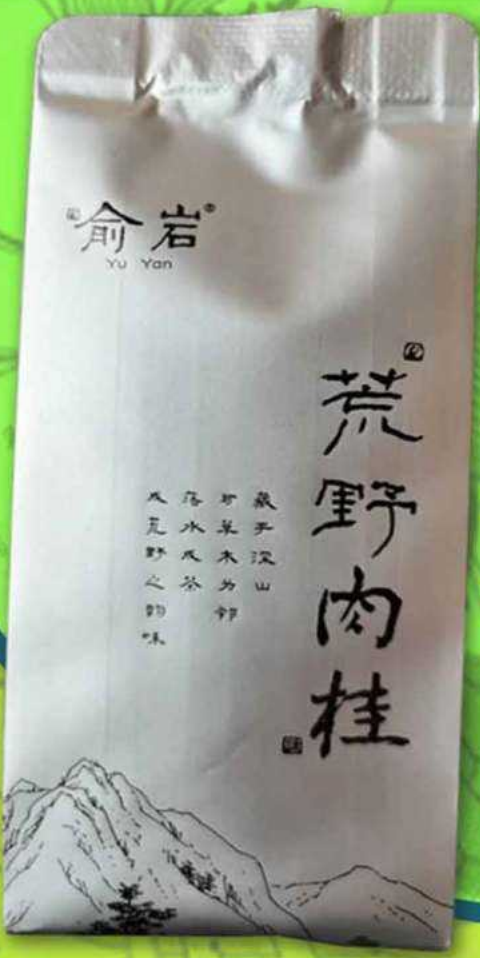 俞岩®
Yu Yan
荒野肉桂
藏于深山
与草木为邻
落水成茶
成荒野之韵味